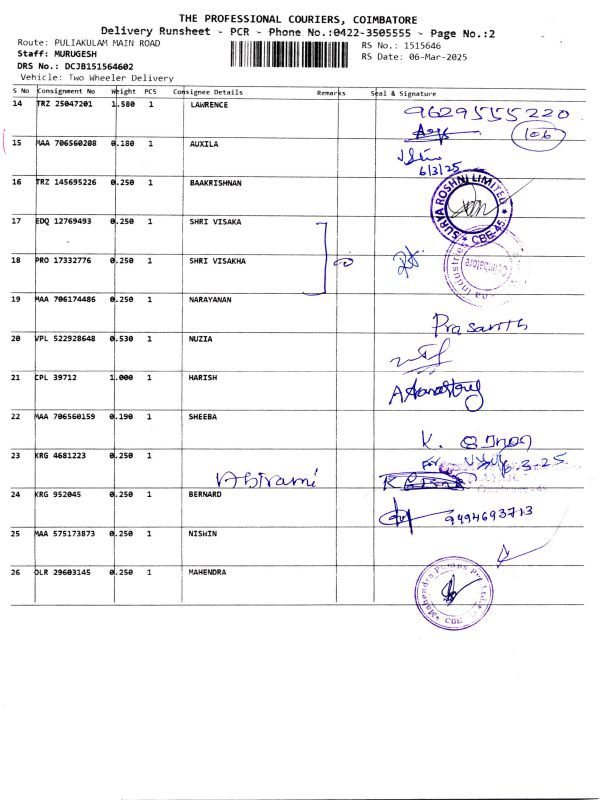 THE PROFESSIONAL COURIERS, COIMBATORE
Delivery Runsheet - PCR - Phone No.:0422-3505555 - Page No.:2
Route: PULIAKULAM MAIN ROAD
RS No.: 1515646
Staff: MURUGESH
RS Date: 06-Mar-2025
DRS No.: DCJB151564602
Vehicle: Two Wheeler Delivery
S No Consignment No Weight PCS Consignee Details Remarks Seal & Signature
14 TRZ 25047201 1.580 1 LAWRENCE 9629555220
106
15 MAA 706560208 0.180 1 AUXILA
6/3/25
16 TRZ 145695226 0.250 1 BAAKRISHNAN
SURYA ROSHNI LIMITED
CBE-45
17 EDQ 12769493 0.250 1 SHRI VISAKA
18 PRO 17332776 0.250 1 SHRI VISAKHA
Industries
Coimbatore
19 MAA 706174486 0.250 1 NARAYANAN
Prasanth
20 VPL 522928648 0.530 1 NUZIA
21 CPL 39712 1.000 1 HARISH
22 MAA 706560159 0.190 1 SHEEBA
K.
23 KRG 4681223 0.250 1
For
6.3.25
Abirami
24 KRG 952045 0.250 1 BERNARD
9494693713
25 MAA 575173873 0.250 1 NISHIN
26 DLR 29603145 0.250 1 MAHENDRA
Mahendra Pumps Pvt Ltd
CBE